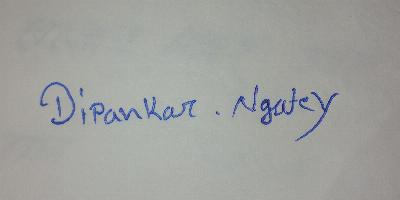 Dipankar . Ngatey